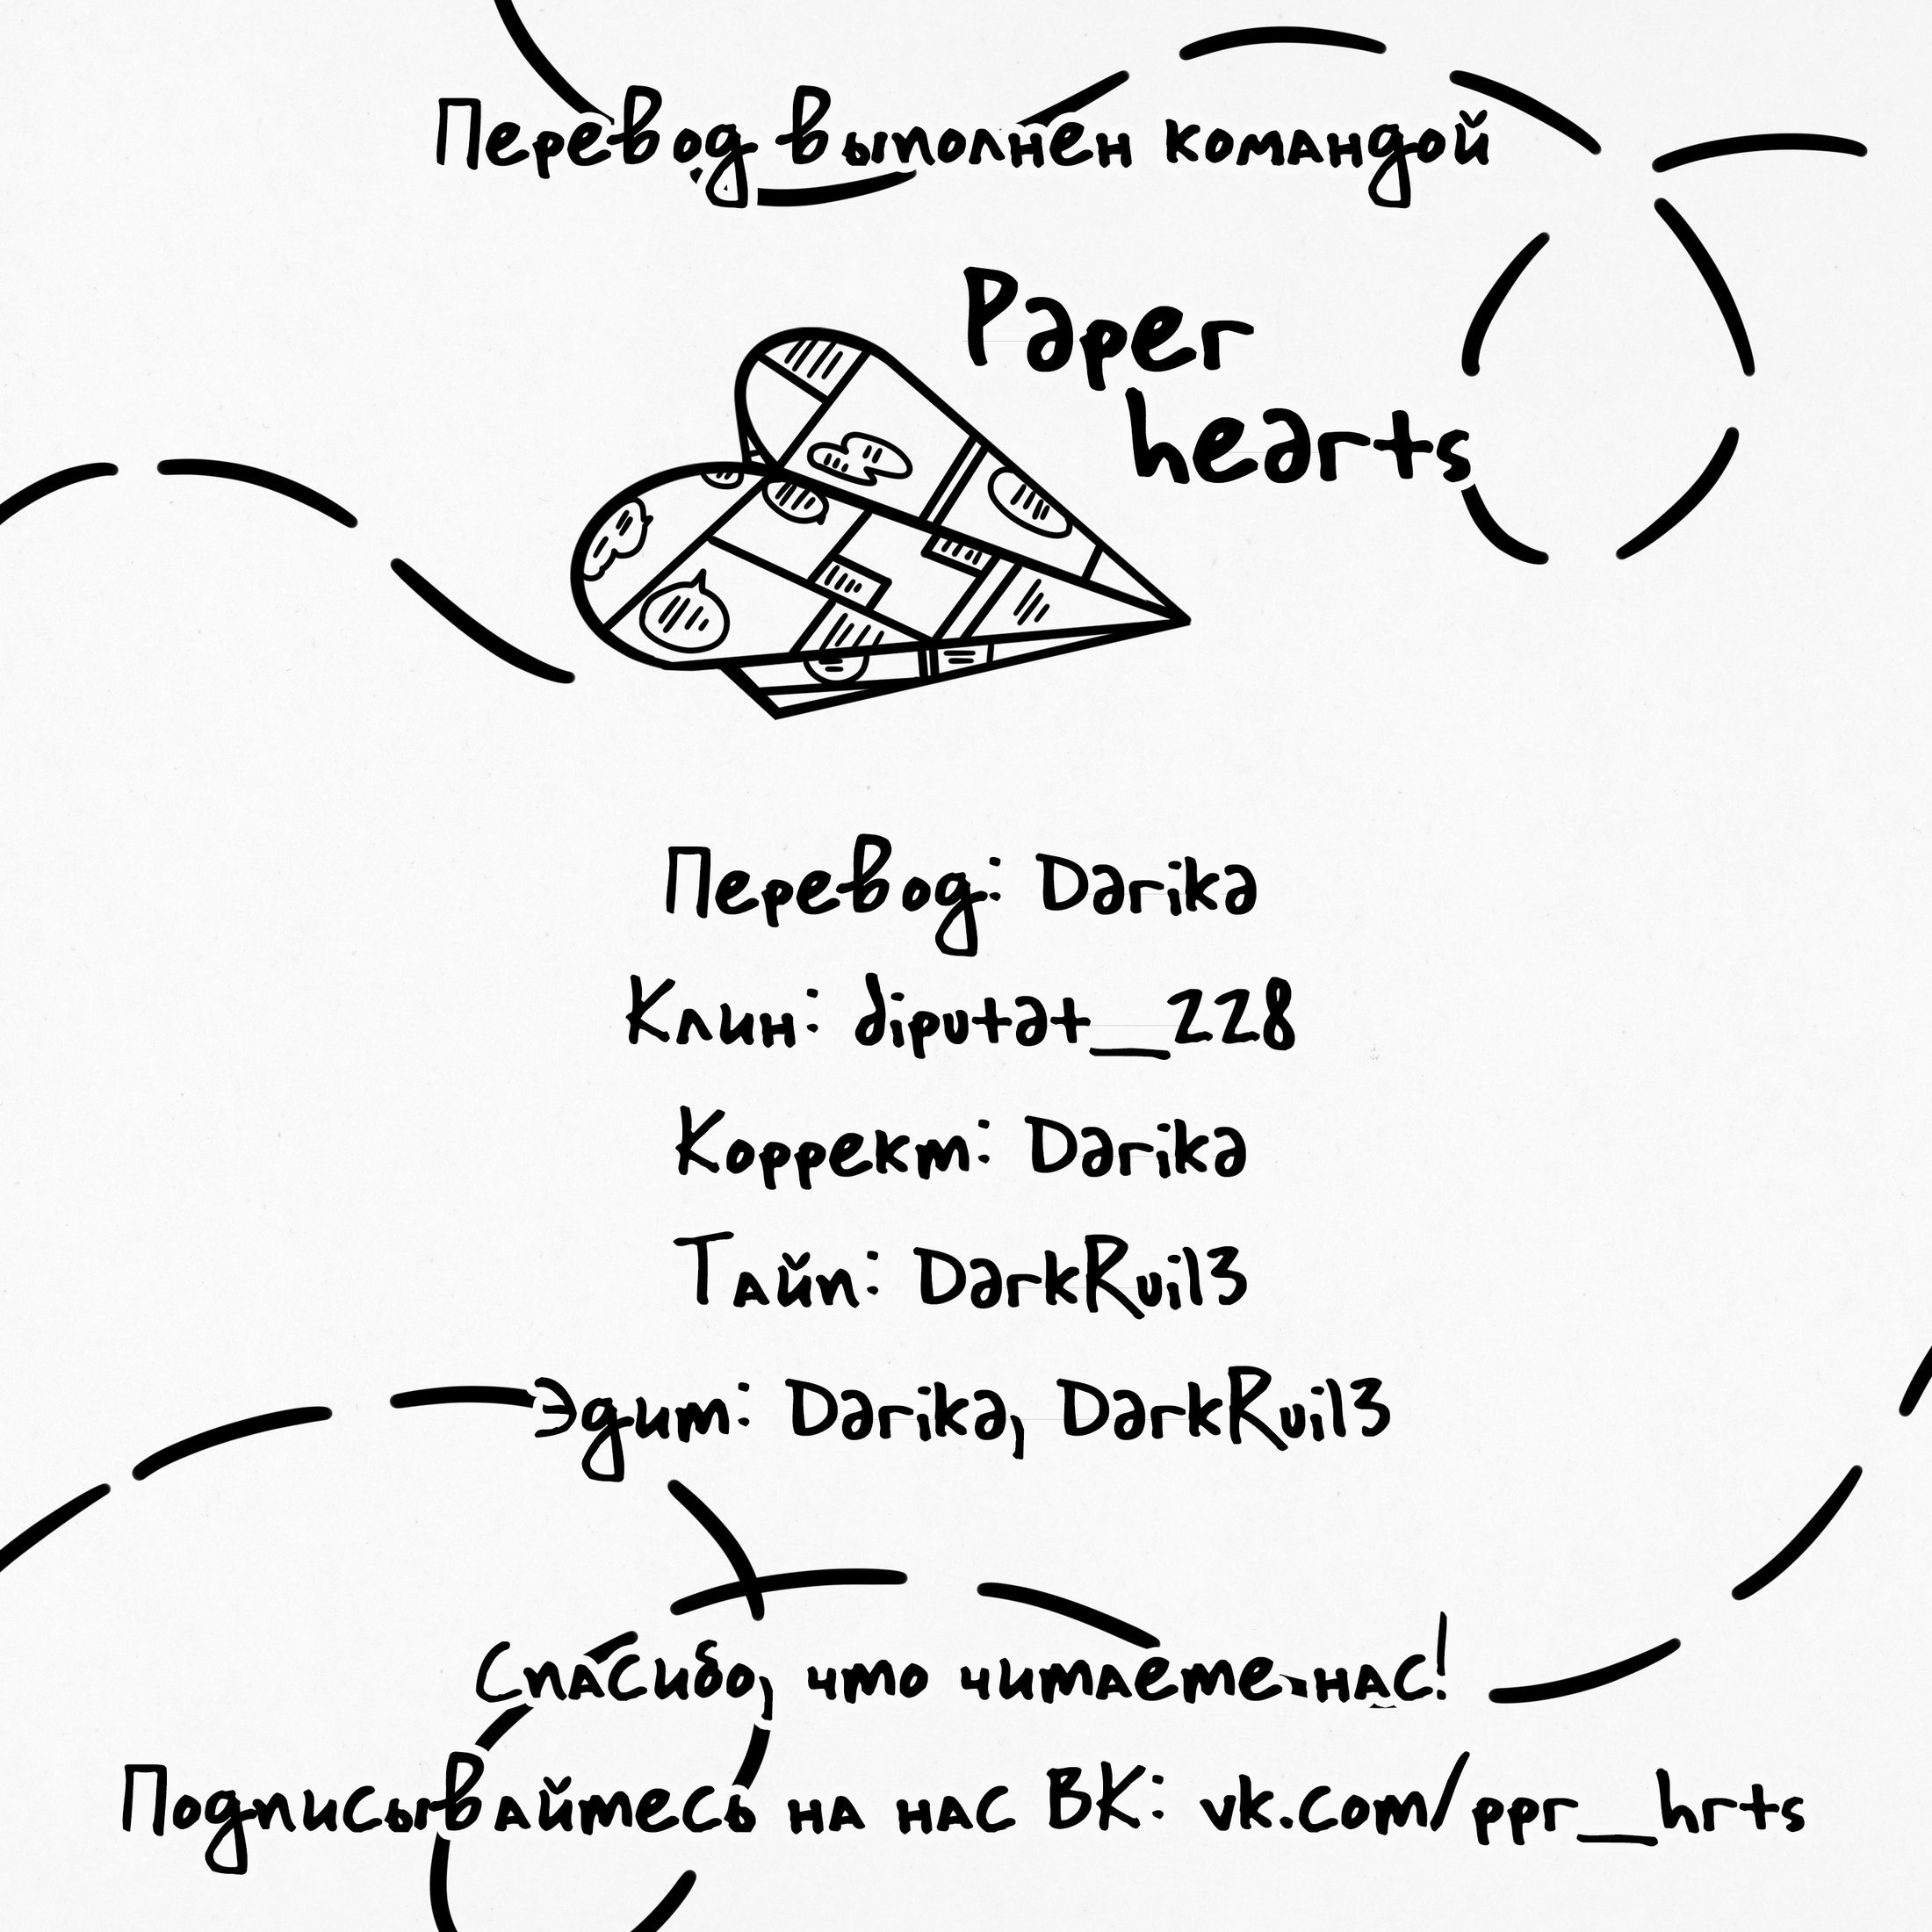 Перевод выполнен командой
Paper
hearts
Перевод: Darika
Клин: diputat_228
Коррект: Darika
Тайп: DarkRuil3
Эдит: Darika, DarkRuil3
Спасибо, что читаете нас!
Подписывайтесь на нас ВК: vk.com/ppr_hrts